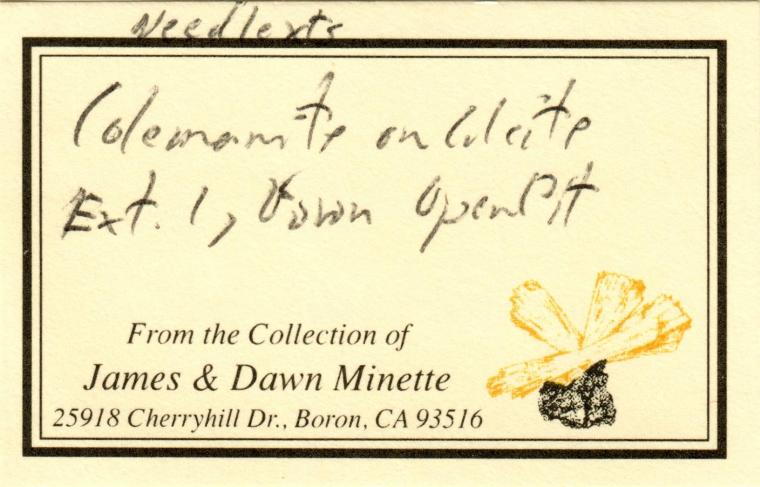 Needlexts
Colemanite on Calcite
Ext. 1, Boron Open Pit
From the Collection of
James & Dawn Minette
25918 Cherryhill Dr., Boron, CA 93516